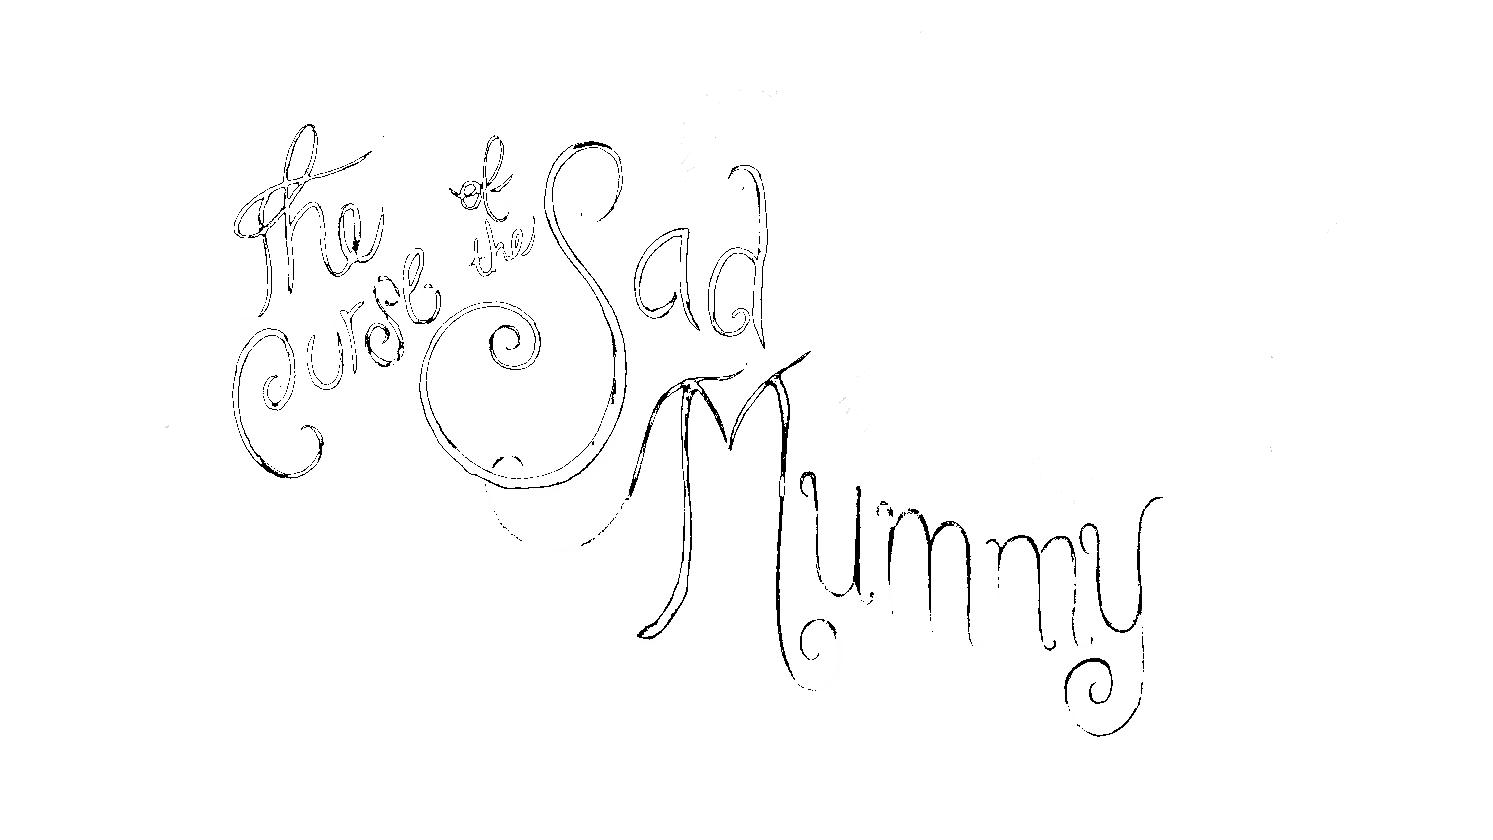 The
Curse
of
the
Sad
Mummy